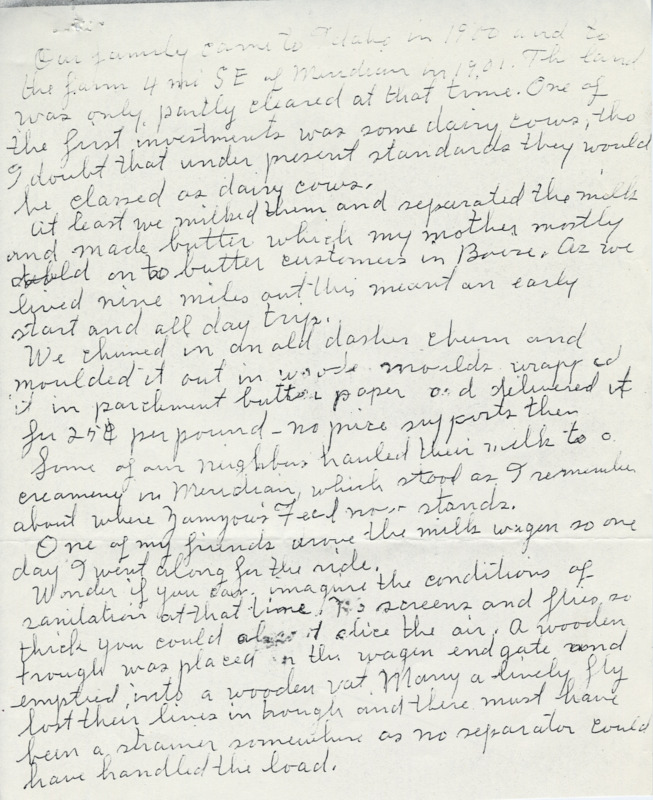 Our family came to Idaho in 1900 and to
the farm 4 mi SE of Meridian in 1901. Th land
was only partly cleared at that time. One of
the first investments was some dairy cows, tho
I doubt that under present standards they would
be classed as dairy cows.
At least we milked them and separated the milk
and made butter which my mother mostly
on to butter customers in Boise. As we
lived nine miles out this meant an early
start and all day trip.
We churned in an old dasher churn and
moulded it out in moulds wrapped
it in parchment butter paper and delivered it
for 25¢ per pound - no price supports then
Some of our neighbors hauled their milk to a
creamery in Meridian, which stood as I remember
about where Feed now stands.
One of my friends drove the milk wagon so one
day I went along for the ride.
Wonder if you can imagine the conditions of
sanitation at that time. No screens and flies so
thick you could slice the air. A wooden
trough was placed in the wagon end gate and
emptied into a wooden vat. Many a lively fly
lost their lives in trough and there must have
been a strainer somewhere as no separator could
have handled the load.